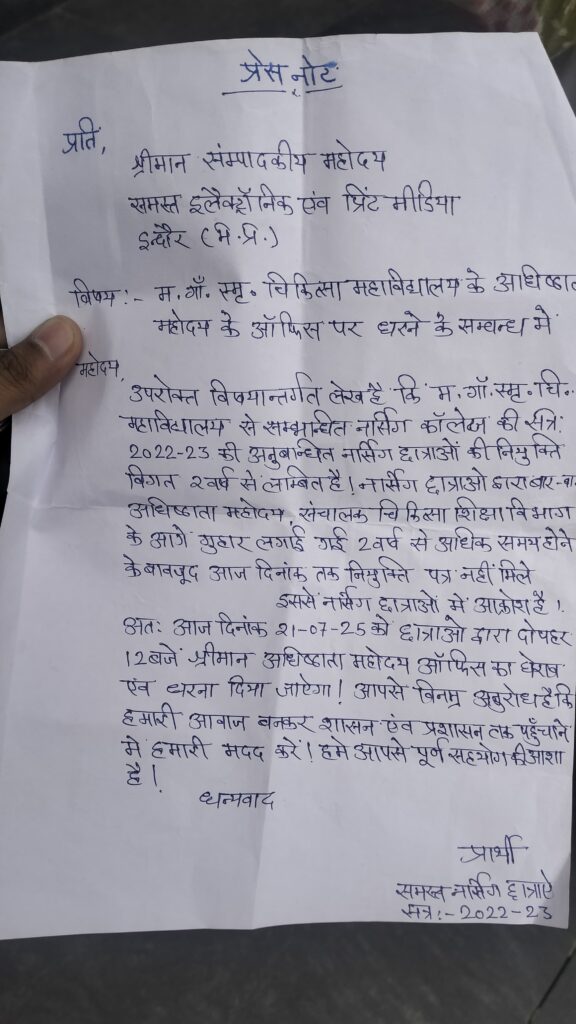 प्रेस नोट
प्रति,
श्रीमान संम्पादकीय महोदय
समस्त इलैक्ट्रॉनिक एंव प्रिंट मीडिया
इन्दौर (म.प्र.)
विषय:- म.गाँ. स्मृ. चिकित्सा महाविद्यालय के अधिष्ठाता
महोदय के ऑफिस पर धरने के सम्बन्ध में
महोदय,
उपरोक्त विषयान्तर्गत लेख है कि म.गाँ.स्मृ.चि.
महाविद्यालय से सम्बान्धित नर्सिंग कॉलेज की सत्र:
2022-23 की अनुबान्धित नर्सिंग छात्राओं की नियुक्ति
विगत 2वर्ष से लाम्बित है! नर्सिंग छात्राओ द्वारा बार-बा
अधिष्ठाता महोदय, संचालक चिकित्सा शिक्षा विभाग
के आगे गुहार लगाई गई 2वर्ष से अधिक समय होने
के बावजूद आज दिनांक तक नियुक्ति पत्र नहीं मिले
इससे नर्सिंग छात्राओं में आक्रोश है!
अतः आज दिनांक 21-07-25 को छात्राओ द्वारा दोपहर
12बजे श्रीमान अधिष्ठाता महोदय ऑफिस का घेराव
एंव धरना दिया जाऐगा! आपसे विनम्र अनुरोध है कि
हमारी आवाज बनकर शासन एंव प्रशासन तक पहुँचाने
मे हमारी मदद करें! हमे आपसे पूर्ण सहयोग की आशा
है!
धन्यवाद
प्रार्थी
समस्त नर्सिंग छात्राऐ
सत्र:- 2022-23